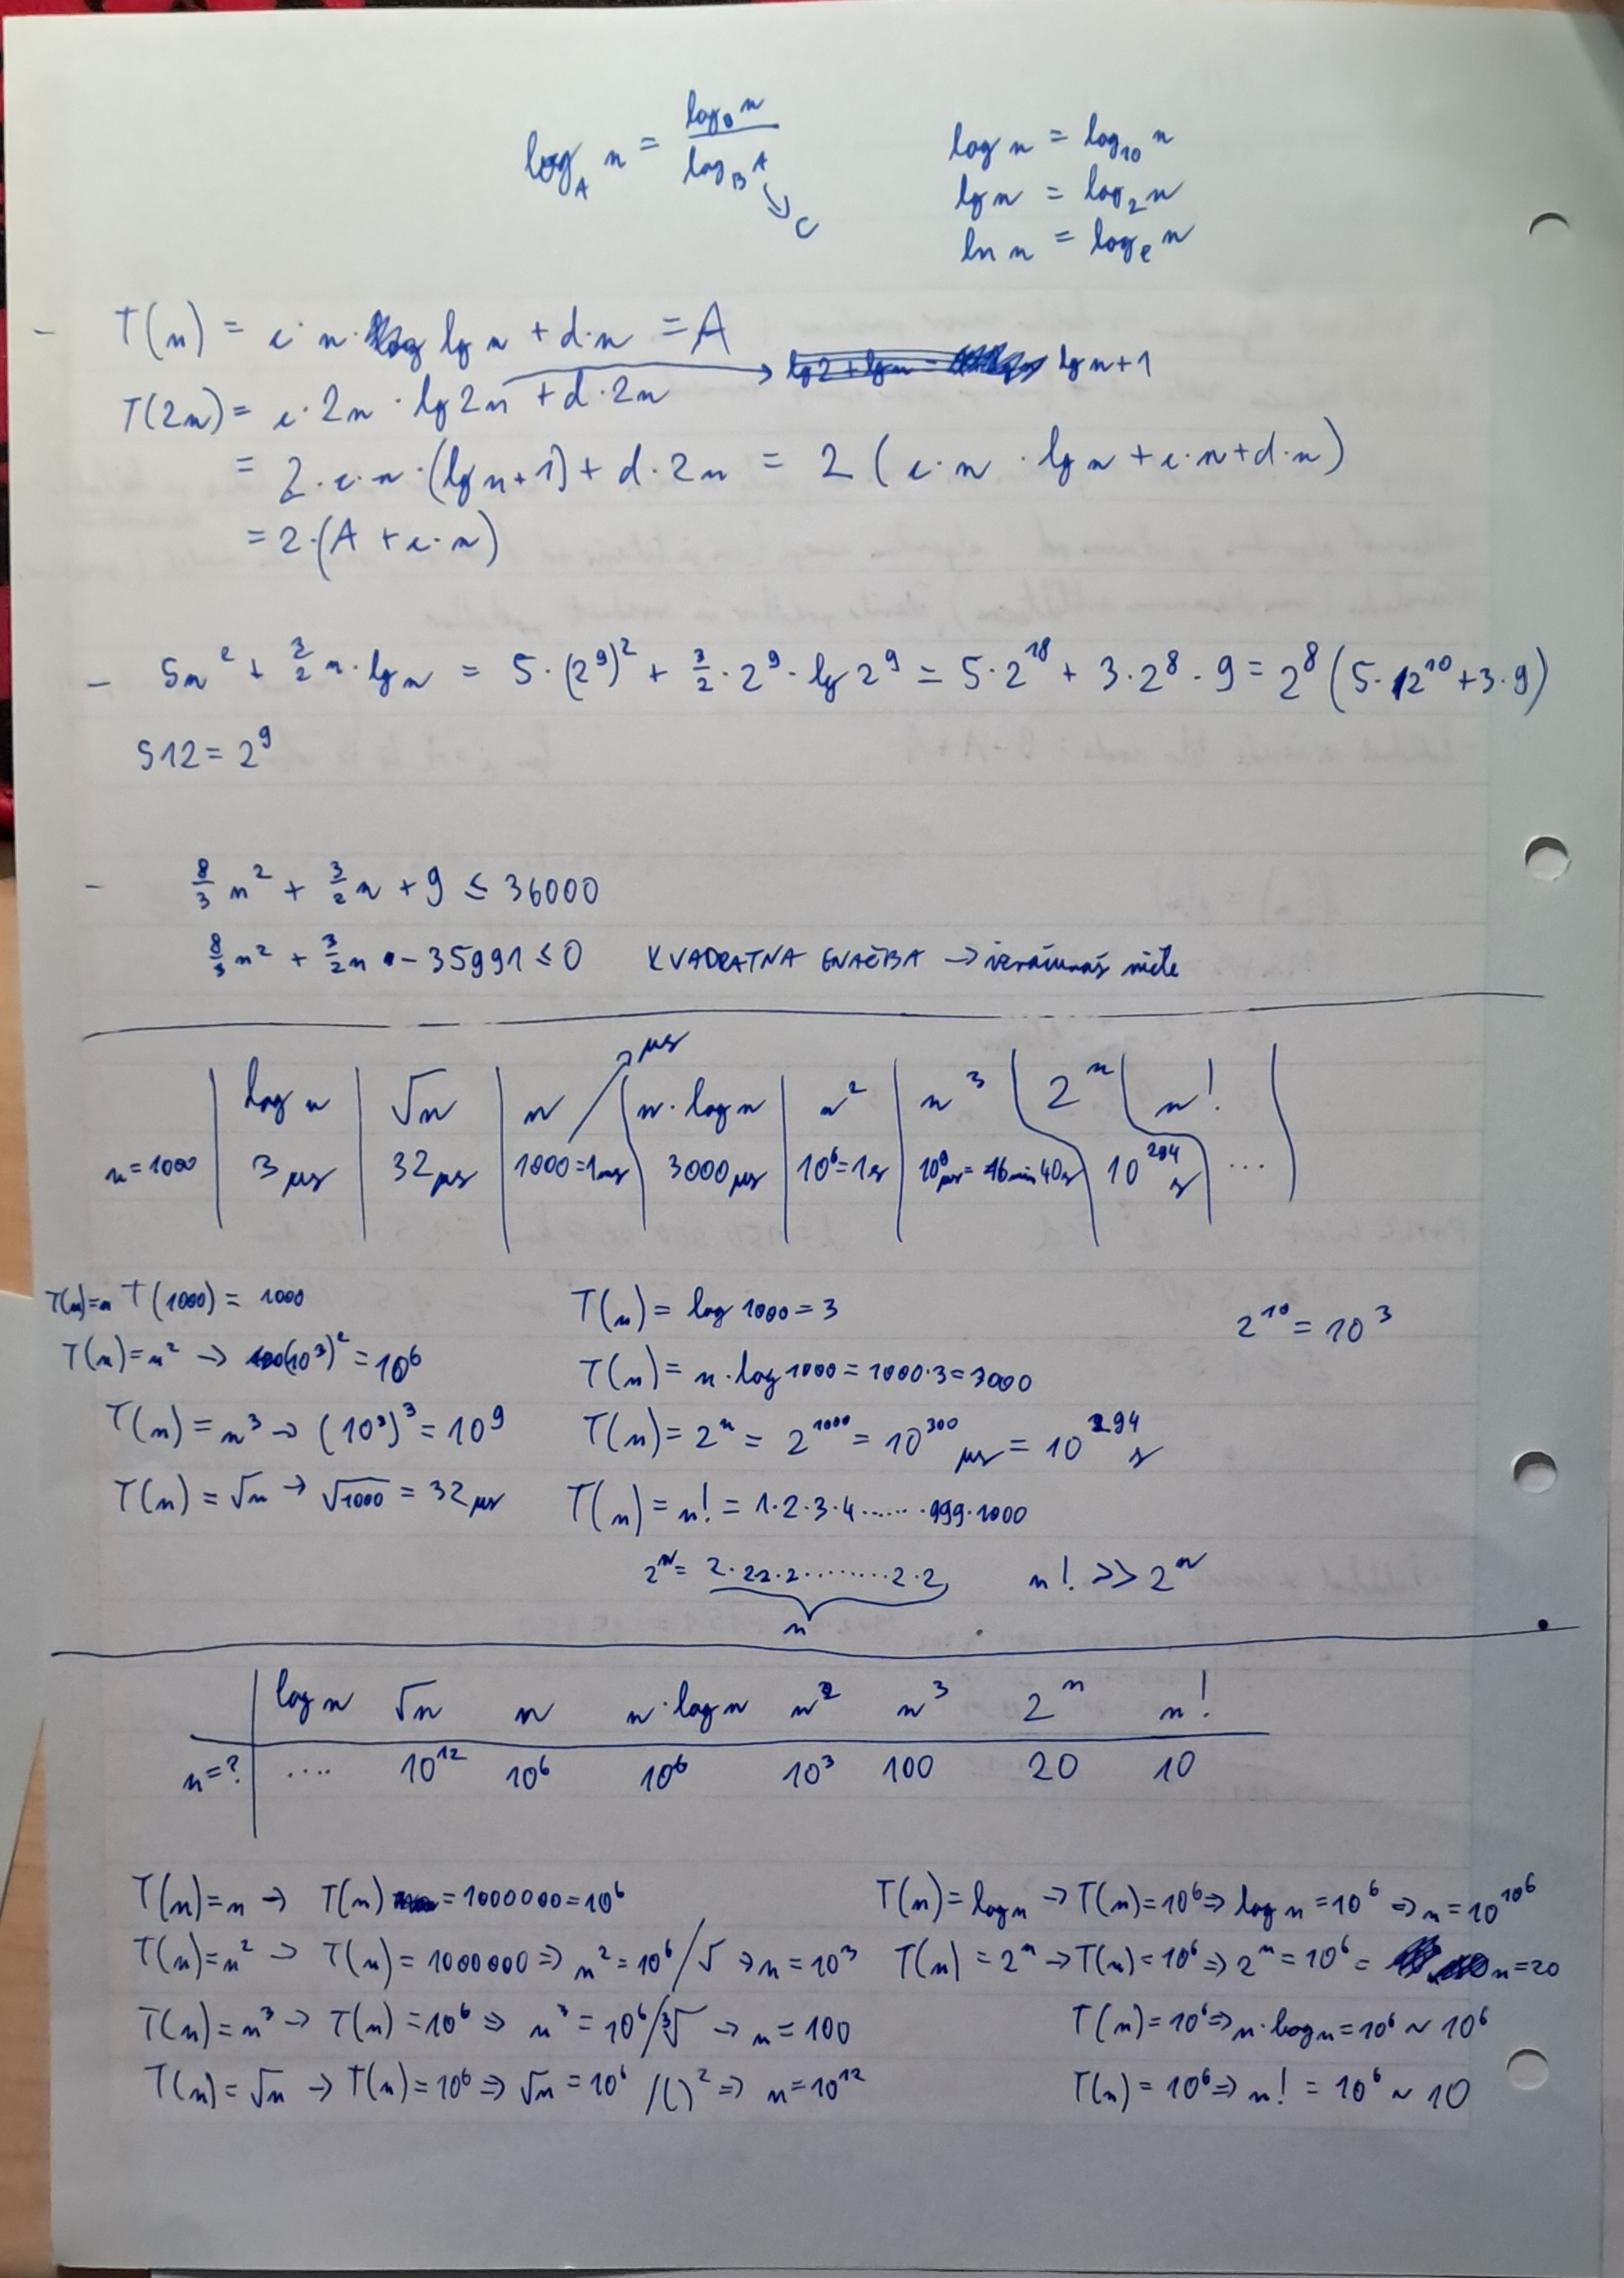 log_A n = log_B n / log_B A → C
log n = log_10 n
lg n = log_2 n
ln n = log_e n
- T(n) = c·n· lg n + d·n = A
T(2n) = c·2n·lg2n + d·2n → lg n+1
= 2·c·n·(lg n+1) + d·2n = 2(c·n·lg n + c·n + d·n)
= 2·(A + c·n)
- 5n² + 3/2 n·lg n = 5·(2⁹)² + 3/2·2⁹·lg 2⁹ = 5·2¹⁸ + 3·2⁸·9 = 2⁸(5·2¹⁰+3·9)
512 = 2⁹
- 8/3 n² + 3/2 n + 9 ≤ 36000
8/3 n² + 3/2 n - 35991 ≤ 0 KVADRATNA ENAČBA → izračunaš ničle
log n | √n | n ↗ μs | n·log n | n² | n³ | 2ⁿ | n! |
n=1000 | 3μs | 32μs | 1000=1ms | 3000μs | 10⁶=1s | 10⁹μs=16min40s | 10²⁹⁴ s | ...
T(n)=n T(1000) = 1000
T(n)=n² → (10³)² = 10⁶
T(n) = n³ → (10³)³ = 10⁹
T(n) = √n → √1000 = 32μs
T(n) = log 1000 = 3
T(n) = n·log 1000 = 1000·3 = 3000
T(n) = 2ⁿ = 2¹⁰⁰⁰ = 10³⁰⁰ μs = 10²⁹⁴ s
T(n) = n! = 1·2·3·4......·999·1000
2ⁿ = 2·2·2·2.........2·2 n! >> 2ⁿ
n
2¹⁰ = 10³
log n √n n n·log n n² n³ 2ⁿ n!
n=? .... 10¹² 10⁶ 10⁶ 10³ 100 20 10
T(n)=n → T(n) = 1000000 = 10⁶
T(n)=n² → T(n) = 1000000 ⇒ n² = 10⁶ /√ → n = 10³
T(n)=n³ → T(n) = 10⁶ ⇒ n³ = 10⁶ /∛ → n = 100
T(n) = √n → T(n) = 10⁶ ⇒ √n = 10⁶ /()² ⇒ n = 10¹²
T(n) = log n → T(n) = 10⁶ ⇒ log n = 10⁶ ⇒ n = 10^10⁶
T(n) = 2ⁿ → T(n) = 10⁶ ⇒ 2ⁿ = 10⁶ = n = 20
T(n) = 10⁶ ⇒ n·log n = 10⁶ ~ 10⁶
T(n) = 10⁶ ⇒ n! = 10⁶ ~ 10